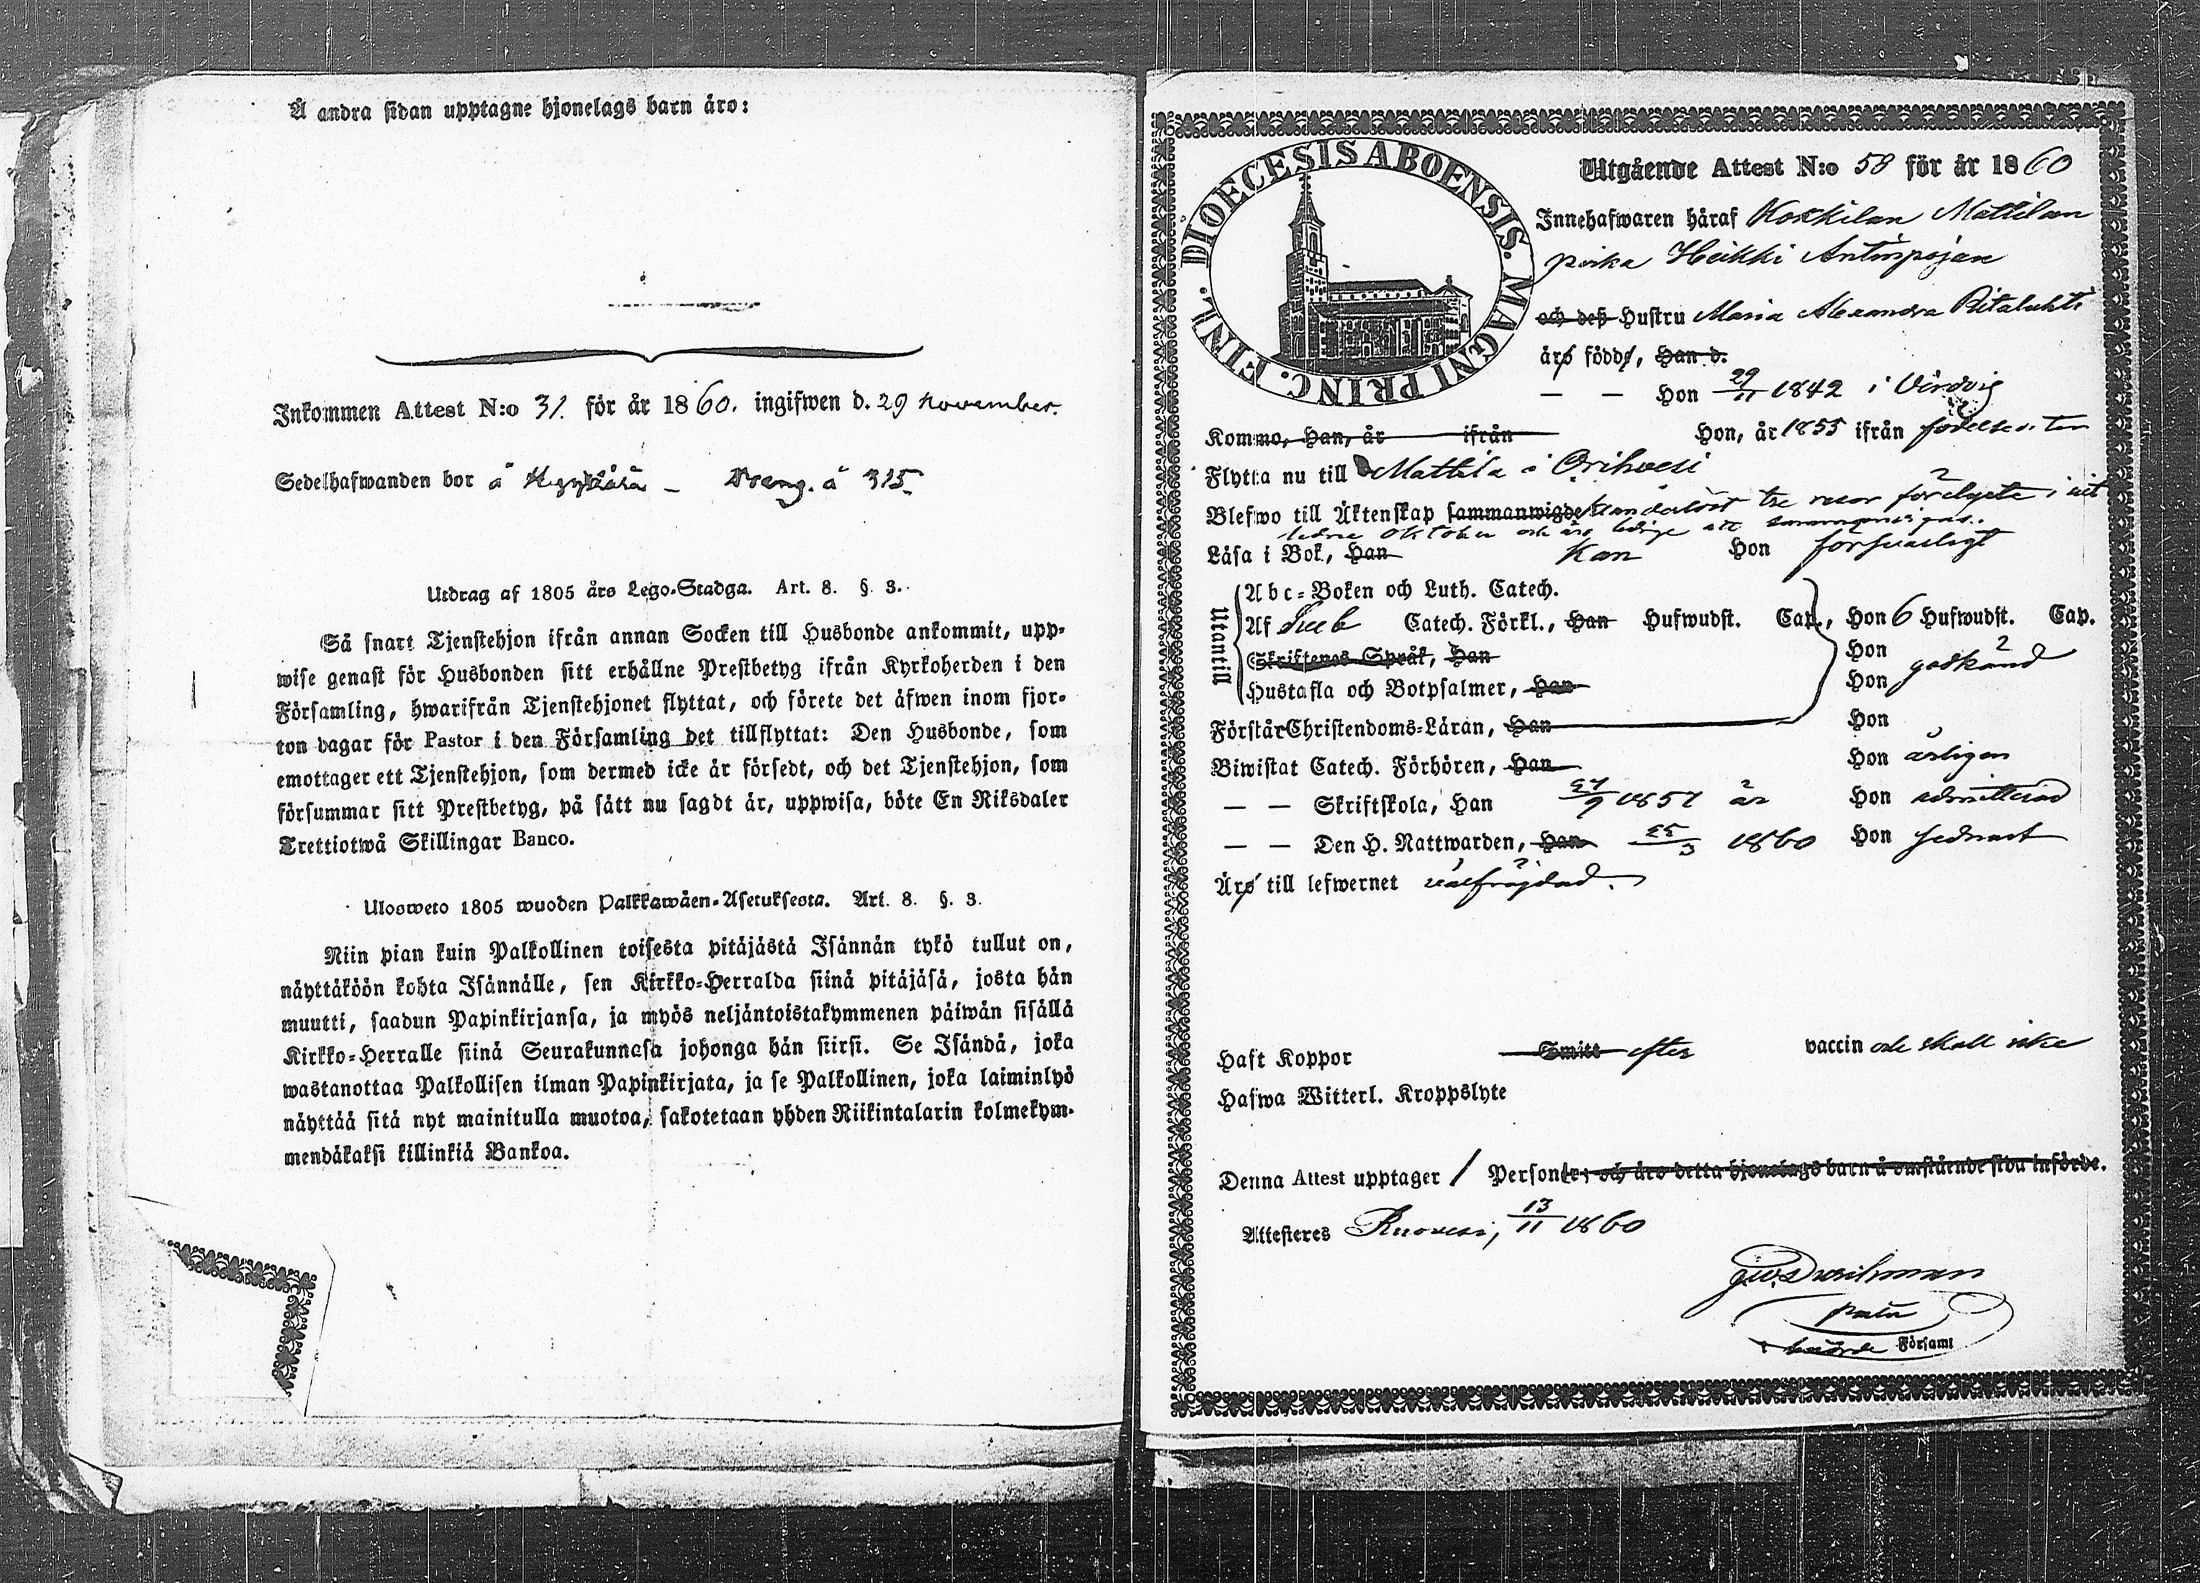 Å andra sidan upptagne hjonelags barn äro:
Inkommen Attest N:o 31. för år 1860. ingifwen d. 29 november.
Sedelhafwanden bor å
å 315.
Utdrag af 1805 års Lego-Stadga. Art. 8. §. 3.
Så snart Tjenstehjon ifrån annan Socken till Husbonde ankommit, upp-
wise genast för Husbonden sitt erhållne Prestbetyg ifrån Kyrkoherden i den
Församling, hwarifrån Tjenstehjonet flyttat, och förete det äfwen inom fjor-
ton dagar för Pastor i den Församling det tillflyttat: Den Husbonde, som
emottager ett Tjenstehjon, som dermed icke är försedt, och det Tjenstehjon, som
försummar sitt Prestbetyg, på sätt nu sagdt är, uppwisa, böte En Riksdaler
Trettiotwå Skillingar Banco.
Ulosweto 1805 wuoden Palkkawäen-Asetuksesta. Art. 8. §. 3.
Niin pian kuin Palkollinen toisesta pitäjästä Isännän tykö tullut on,
näyttäköön kohta Isännälle, sen Kirkko-Herralda siinä pitäjäsä, josta hän
muutti, saadun Papinkirjansa, ja myös neljäntoistakymmenen päiwän sisällä
Kirkko-Herralle siinä Seurakunnasa johonga hän siirsi. Se Isändä, joka
wastanottaa Palkollisen ilman Papinkirjata, ja se Palkollinen, joka laiminlyö
näyttää sitä nyt mainitulla muotoa, sakotetaan yhden Riikintalarin kolmekym-
mendäkaksi killinkiä Bankoa.
DIOECESIS ABOENSIS. MAGNI PRINC. FINL.
Utgående Attest N:o 58 för år 1860
Innehafwaren häraf Kokkilan Mattilan
poika Heikki Antinpojan
och deß Hustru Maria Alexandra Ritalahti
äro födde, Han d.
— — Hon 29/11 1842 i
Kommo, Han, år ifrån Hon, år 1855 ifrån födelseorten
Flytta nu till Mattila i Orihvesi
Blefwo till Äktenskap sammanwigde tre resor förelyste i
oktober och att
Läsa i Bok, Han kan Hon försvarligt
Utantill
Abc-Boken och Luth. Catech.
Af Catech. Förkl., Han Hufwudst. Cap., Hon 6 Hufwudst. Cap.
Skriftenes Språk, Han Hon
Hustafla och Botpsalmer, Han Hon godkänd
Förstår Christendoms-Läran, Han Hon
Biwistat Catech. Förhören, Han Hon årligen
— — Skriftskola, Han 27/9 1857 är Hon admitterad
— — Den H. Nattwarden, Han 25/3 1860 Hon sednast
Äro till lefwernet välfrägdad.
Haft Koppor Smitt efter vaccin och skall icke
Hafwa Witterl. Kroppslyte
Denna Attest upptager 1 Personer; och äro detta hjonelags barn å omstående sida införde.
Attesteres Ruovesi, 13/11 1860
Församl